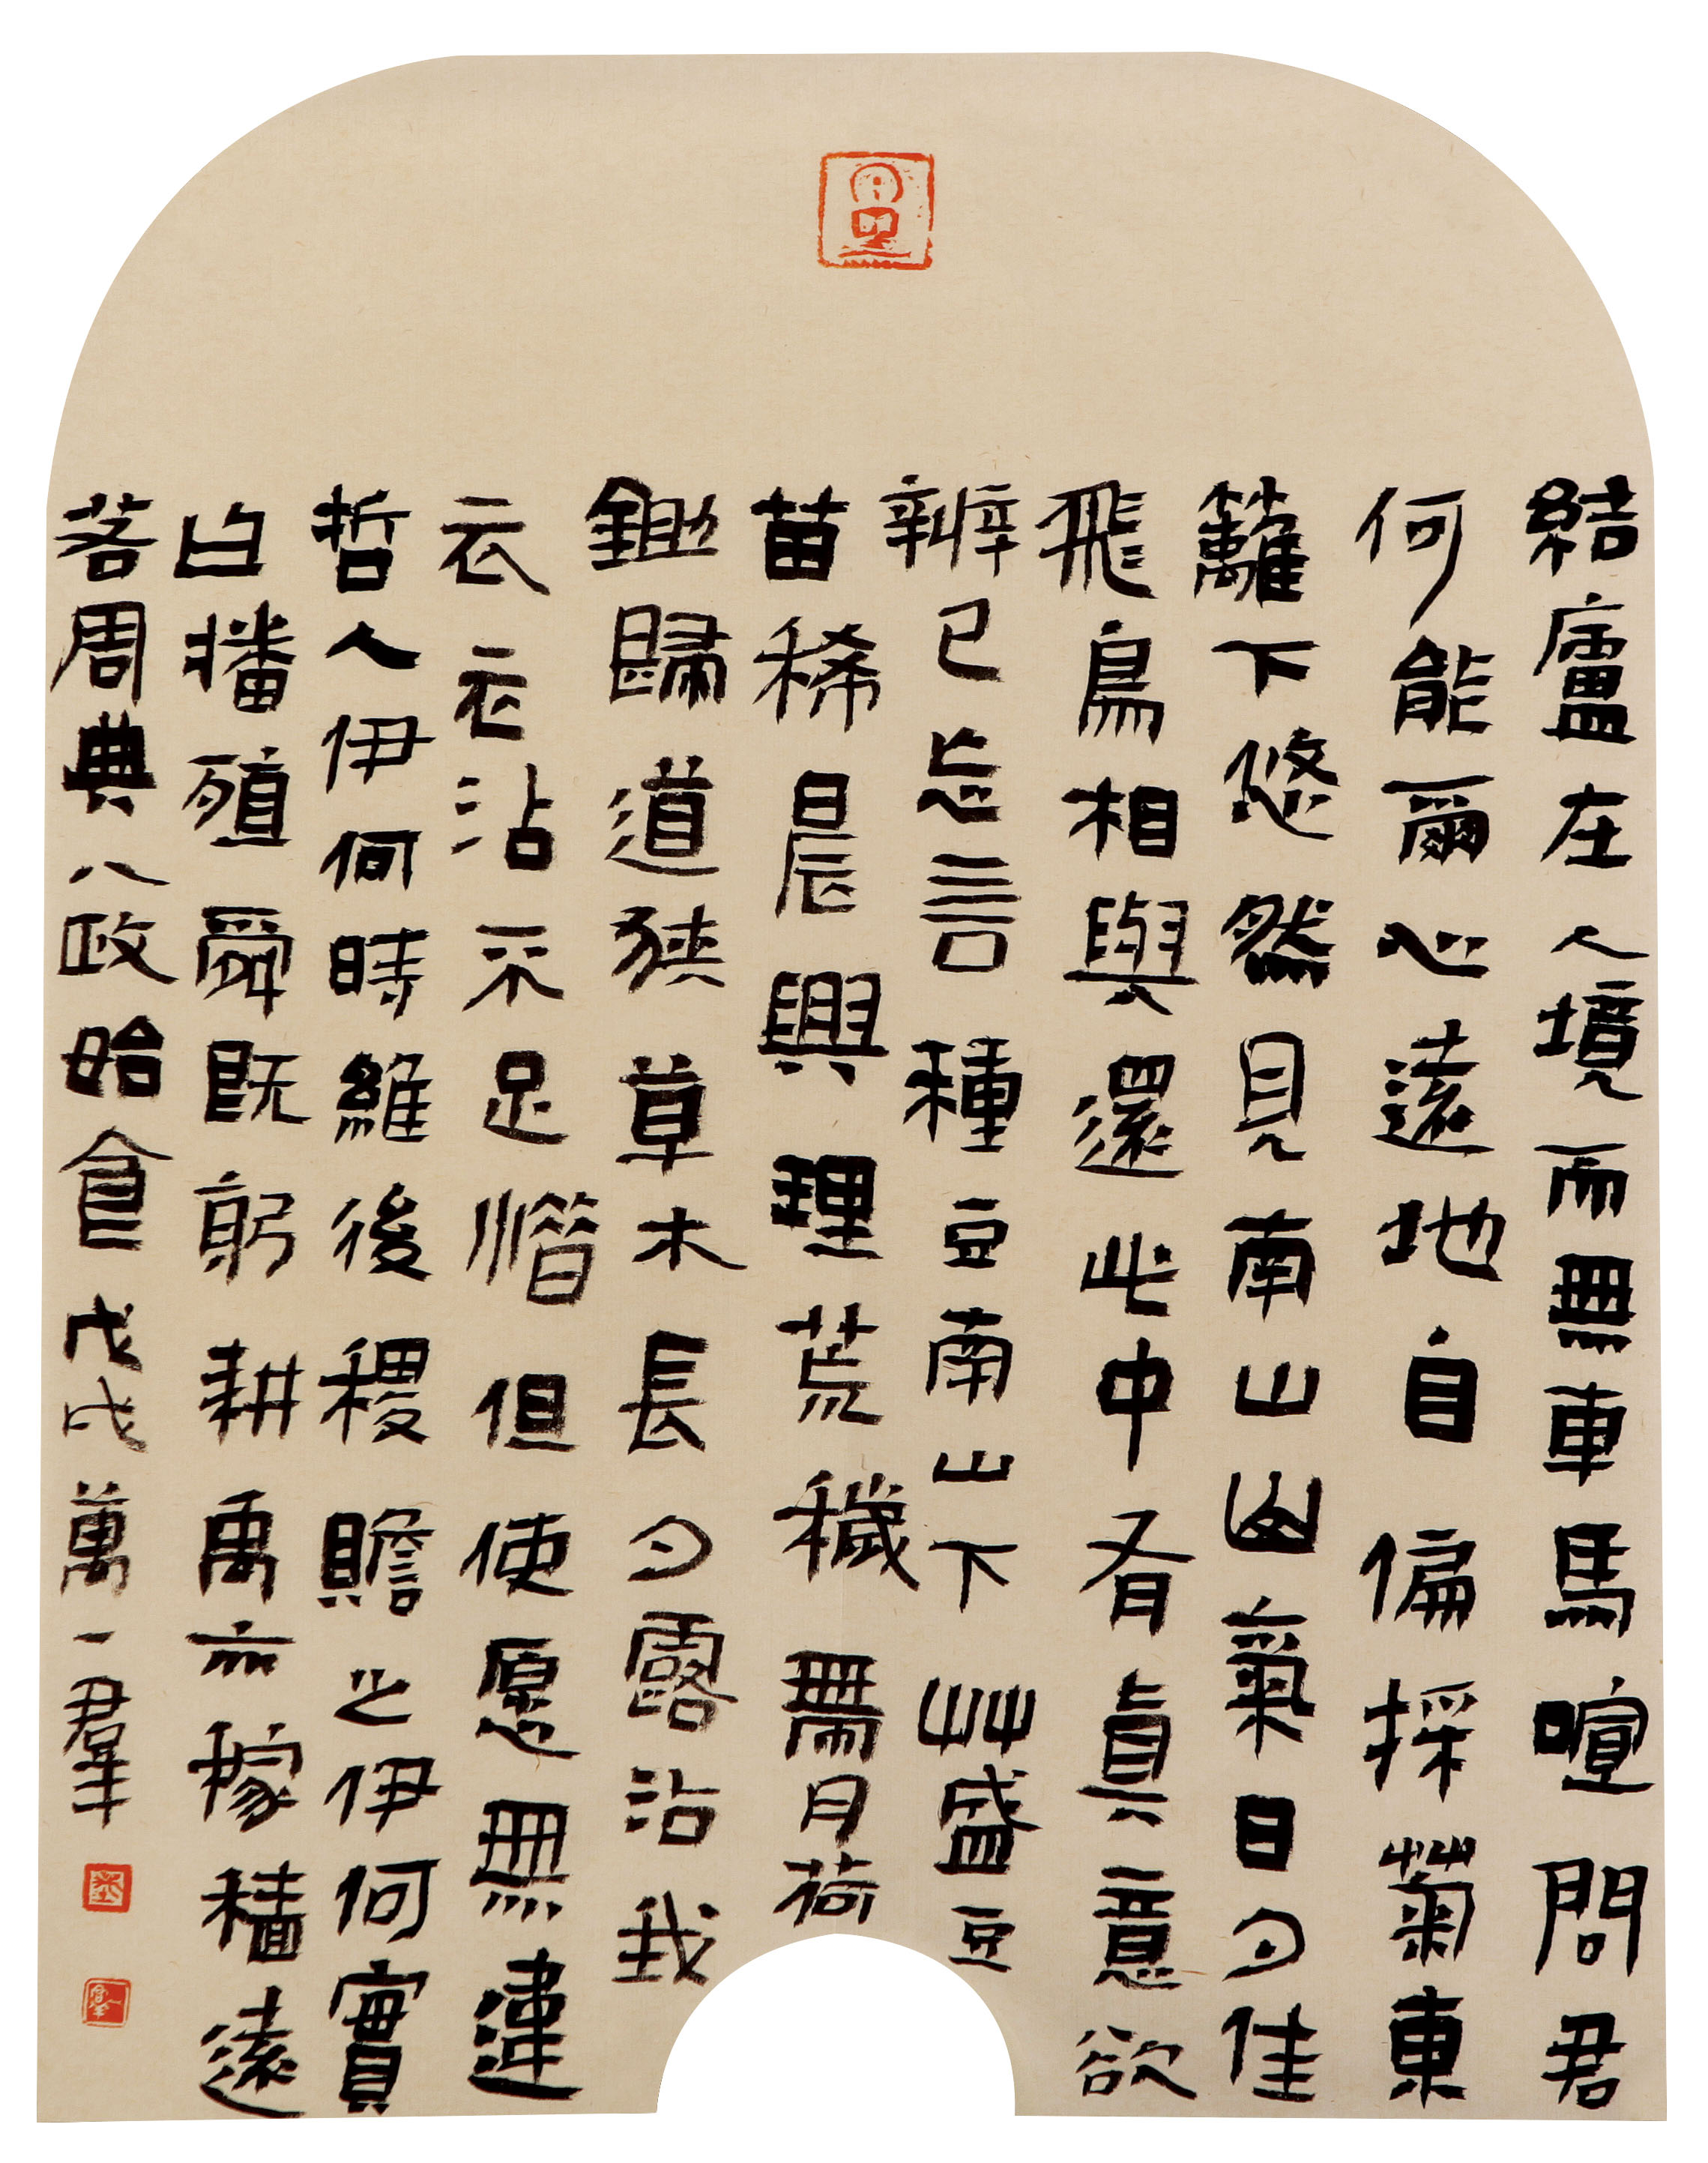 結廬在人境而無車馬喧問君
何能爾心遠地自偏採菊東
籬下悠然見南山山氣日夕佳
飛鳥相與還此中有眞意欲
辨已忘言種豆南山下艸盛豆
苗稀晨興理荒穢帶月荷
鋤歸道狹草木長夕露沾我
衣衣沾不足惜但使愿無違
哲人伊何時維後稷贍之伊何實
曰播殖舜既躬耕禹亦稼穡遠
若周典八政始食戊戌萬一羣